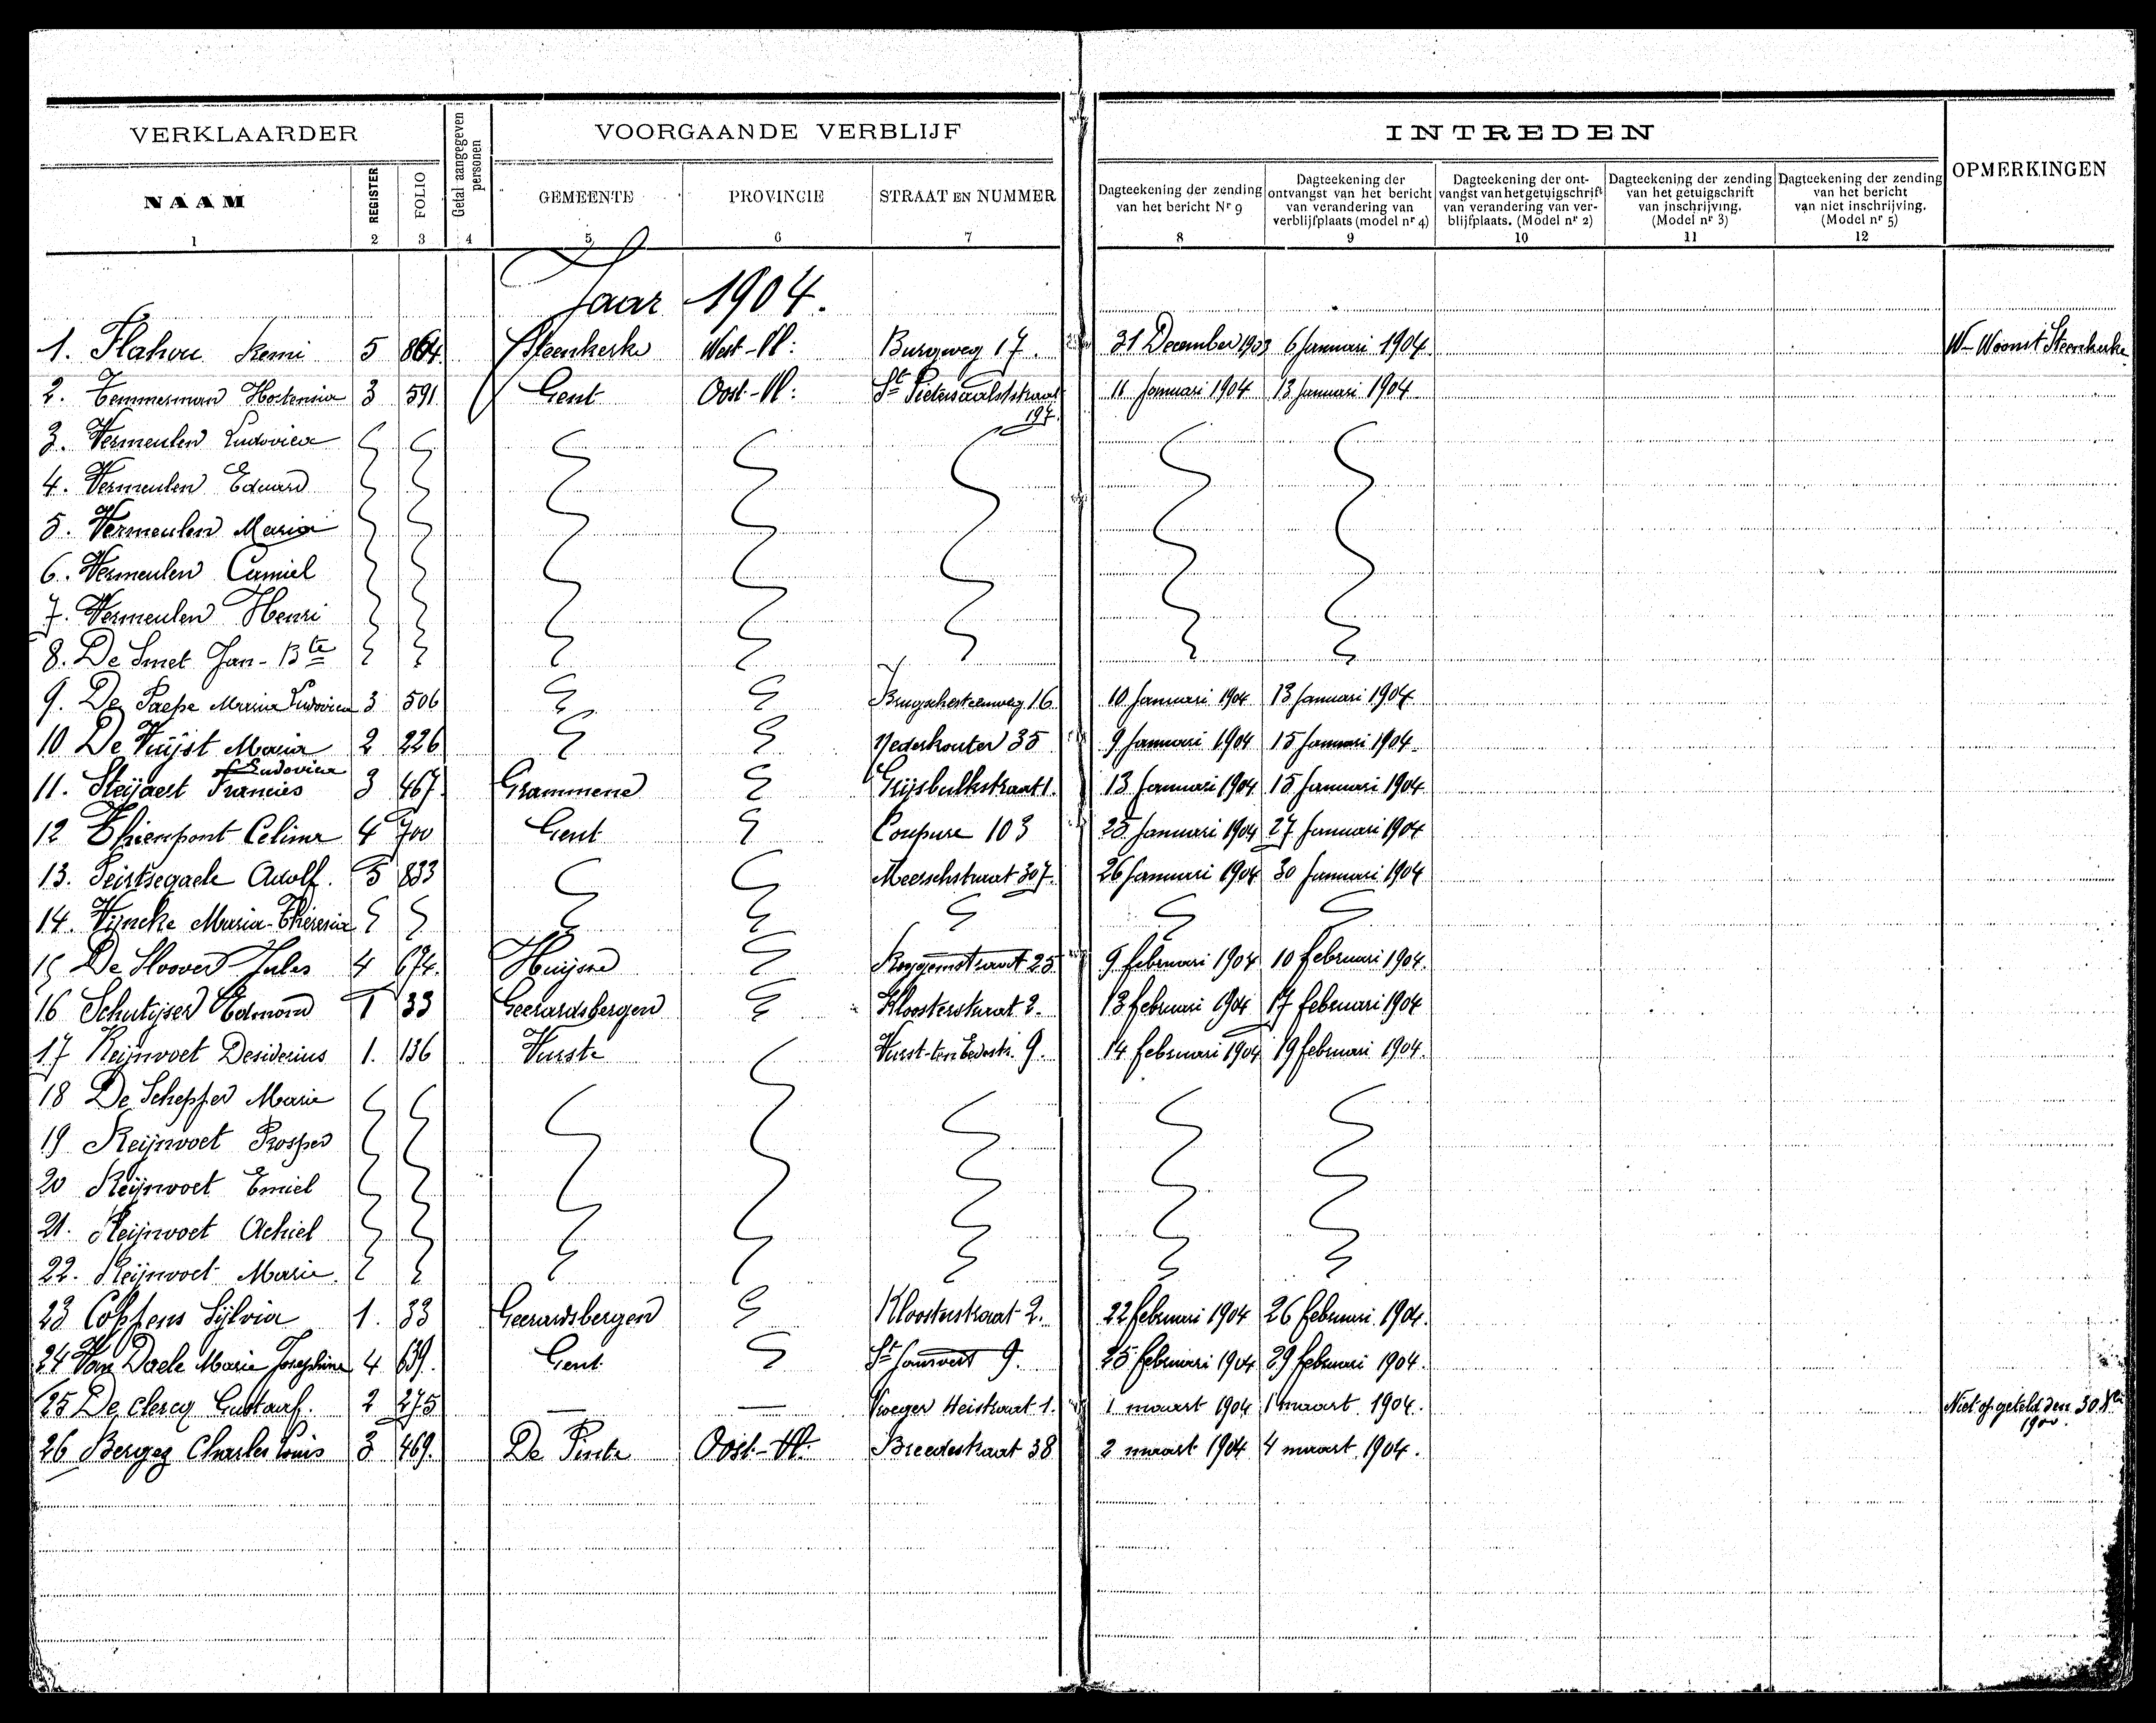 VERKLAARDER
Getal aangegeven personen
VOORGAANDE VERBLIJF
INTREDEN
OPMERKINGEN
NAAM
REGISTER
FOLIO
GEMEENTE
PROVINCIE
STRAAT EN NUMMER
Dagteekening der zending van het bericht Nr 9
Dagteekening der ontvangst van het bericht van verandering van verblijfplaats (model nr 4)
Dagteekening der ontvangst van het getuigschrift van verandering van verblijfplaats. (Model nr 2)
Dagteekening der zending van het getuigschrift van inschrijving. (Model nr 3)
Dagteekening der zending van het bericht van niet inschrijving. (Model nr 5)
1 2 3 4 5 6 7 8 9 10 11 12
Jaar 1904.
1. Flahou Remi 5 864 Steenkerke West-Vl: Burgweg 17. 31 December 1903 6 Januari 1904 W- Woonst Steenkerke
2. Temmerman Hortensia 3 591 Gent Oost-Vl: St Pietersaalststraat 197. 11 Januari 1904 13 Januari 1904
3. Vermeulen Ludovica
4. Vermeulen Eduard
5. Vermeulen Maria
6. Vermeulen Camiel
7. Vermeulen Henri
8. De Smet Jan-Bte
9. De Paepe Maria Ludovica 3 506 Brugschesteenweg 16 10 Januari 1904 13 Januari 1904
10 De Vuijst Maria 2 226 Nederkouter 35 9 Januari 1904 15 Januari 1904
Ludovica
11. Steijaert Francies 3 467 Grammene 13 Januari 1904 15 Januari 1904
12 Thienpont Celina 4 700 Gent Coupure 103 25 Januari 1904 27 Januari 1904
13. Peirtsegaele Adolf. 5 833 Meerschstraat 307. 26 Januari 1904 30 Januari 1904
14. Vijncke Maria-Théresia
15 De Sloover Jules 4 674. Huijsse 9 februari 1904 10 februari 1904.
16 Schutijser Edmond 1 33 Geeraardsbergen Kloosterstraat 2. 13 februari 1904 17 februari 1904
17 Reijnvoet Desiderius 1. 136 Vurste 9. 14 februari 1904 19 februari 1904.
18 De Schepper Marie
19 Reijnvoet Prosper
20 Reijnvoet Emiel
21. Reijnvoet Achiel
22. Reijnvoet Marie
23 Coppens Sijlvia 1. 33 Geeraardsbergen Kloosterstraat 2. 22 februari 1904 26 februari 1904.
24 Van Daele Marie Josephine 4 639. Gent 9. 25 februari 1904 29 februari 1904.
25 De Clercq Gustaaf. 2 275 — — 1. 1 maart 1904 1 maart 1904. Niet opgeteld den 30 Xbr 1900.
26 Bergez Charles Louis 3 469. De Pinte Oost-Vl: Breedestraat 38 2 maart 1904 4 maart 1904.